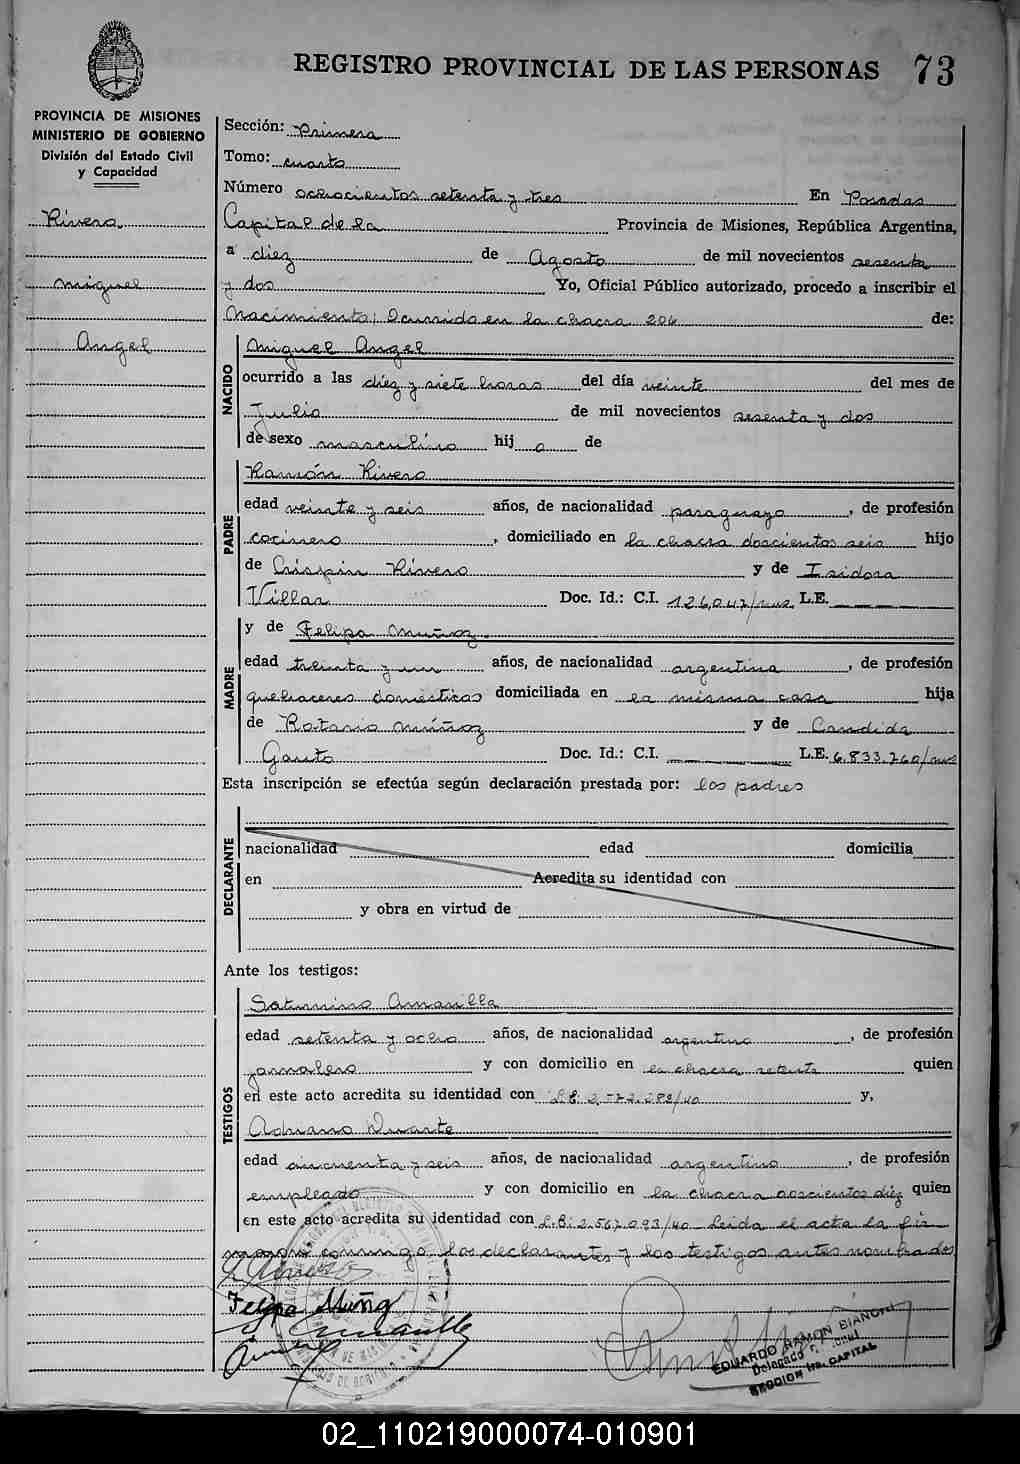 REGISTRO PROVINCIAL DE LAS PERSONAS 73
PROVINCIA DE MISIONES
MINISTERIO DE GOBIERNO
División del Estado Civil
y Capacidad
Rivero
Miguel
Angel
Sección: Primera
Tomo: cuarto
Número ochocientos setenta y tres En Posadas
Capital de la Provincia de Misiones, República Argentina,
a diez de Agosto de mil novecientos sesenta
y dos Yo, Oficial Público autorizado, procedo a inscribir el
Nacimiento; Ocurrido en la chacra 206 de:
NACIDO
Miguel Angel
ocurrido a las diez y siete horas del día veinte del mes de
Julio de mil novecientos sesenta y dos
de sexo masculino hij o de
PADRE
Ramón Rivero
edad veinte y seis años, de nacionalidad paraguayo, de profesión
cocinero, domiciliado en la chacra doscientos seis hijo
de Crispin Rivero y de Isidora
Villar Doc. Id.: C.I. 126.047/mns L.E.
MADRE
y de Felipa Muñoz
edad treinta y un años, de nacionalidad argentina, de profesión
quehaceres domésticos domiciliada en la misma casa hija
de Rotario Muñoz y de Candida
Gauto Doc. Id.: C.I. L.E. 6.833.760/mns
Esta inscripción se efectúa según declaración prestada por: los padres
DECLARANTE
nacionalidad edad domicilia
en Acredita su identidad con
y obra en virtud de
Ante los testigos:
TESTIGOS
Saturnino Amarilla
edad setenta y ocho años, de nacionalidad argentino, de profesión
jornalero y con domicilio en la chacra setenta quien
en este acto acredita su identidad con y,
Adriano Duarte
edad cincuenta y seis años, de nacionalidad argentino, de profesión
empleado y con domicilio en la chacra doscientos diez quien
en este acto acredita su identidad con L.E: 2.567.093/40 Leida el acta la fir
maron conmigo los declarantes y los testigos antes nombrados
Felipa Muñoz
EDUARDO RAMON BIANCHI
Delegado
SECCION 1ra. CAPITAL
02_110219000074-010901